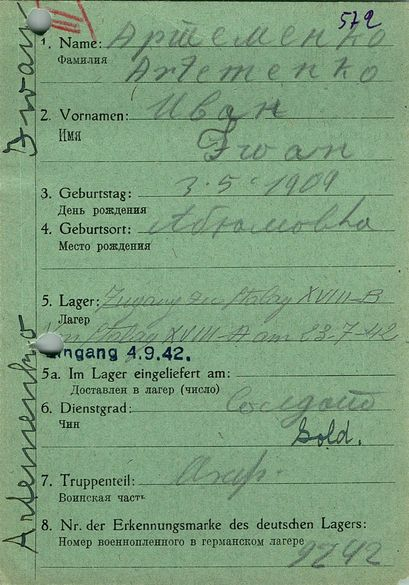 572
1. Name: Артеменко
Фамилия
Artemenko
2. Vornamen: Иван
Имя
Iwan
3. Geburtstag: 3.5.1909
День рождения
4. Geburtsort:
Место рождения
5. Lager: Zugang zu Stalag XVIII-B
Лагер
von Stalag XVIII-A am 23-7-42
4.9.42.
5a. Im Lager eingeliefert am:
Доставлен в лагер (число)
6. Dienstgrad: Солдат
Чин
Sold.
7. Truppenteil:
Воинская часть
8. Nr. der Erkennungsmarke des deutschen Lagers:
Номер военнопленного в германском лагере
9242
Iwan
Artemenko